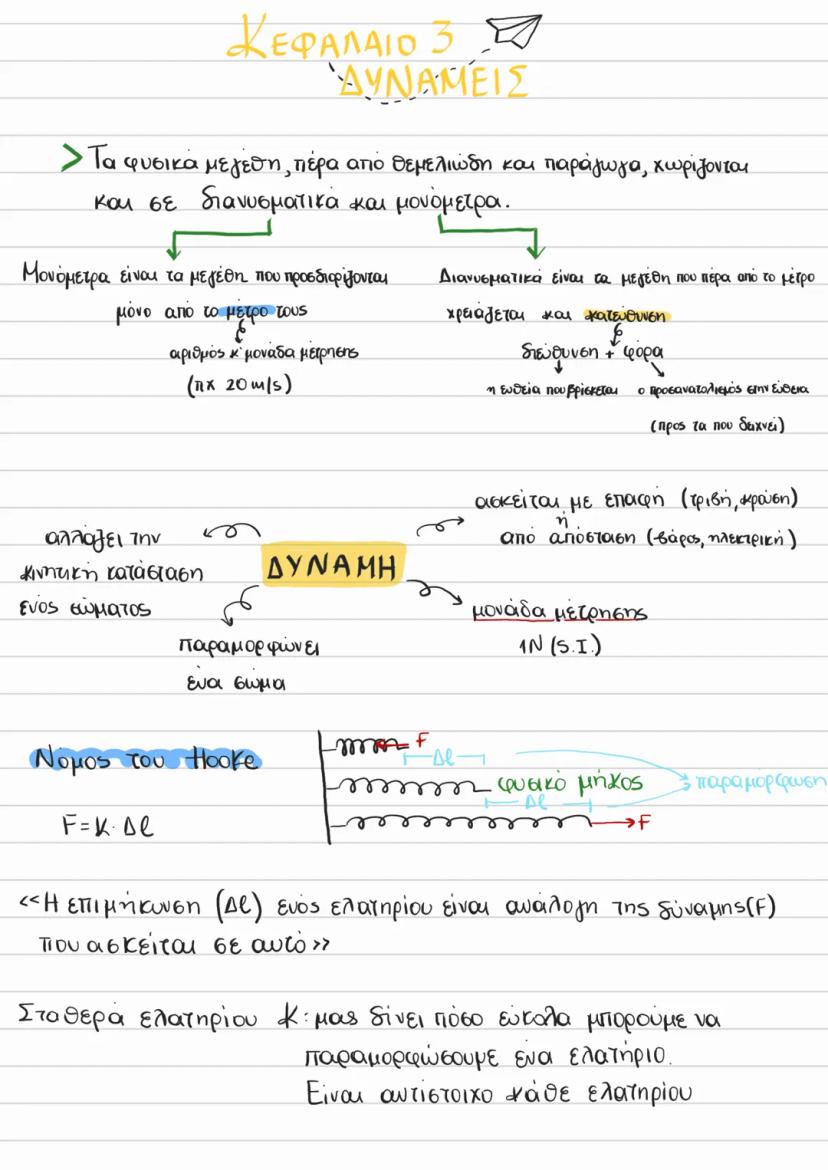 ΚΕΦΑΛΑΙΟ 3
ΔΥΝΑΜΕΙΣ
> Τα φυσικά μεγέθη, πέρα από θεμελιώδη και παράγωγα, χωρίζονται
και σε διανυσματικά και μονόμετρα.
Μονόμετρα είναι τα μεγέθη που προσδιορίζονται
μόνο από το μέτρο τους
αριθμός κ' μονάδα μέτρησης
(πχ 20 m/s)
Διανυσματικά είναι τα μεγέθη που πέρα από το μέτρο
χρειάζεται και κατεύθυνση
διεύθυνση + φόρα
η ευθεία που βρίσκεται
ο προσανατολισμός στην ευθεία
(προς τα που δείχνει)
αλλάζει την
κινητική κατάσταση
ενός σώματος
ΔΥΝΑΜΗ
ασκείται με επαφή (τριβή, κρούση)
ή
από απόσταση (βάρος, ηλεκτρική)
παραμορφώνει
ένα σώμα
μονάδα μέτρησης
1N (S.I.)
Νόμος του Hooke
F = K · Δl
F
Δl
φυσικό μήκος
παραμόρφωση
Δl
F
<<Η επιμήκυνση (Δl) ενός ελατηρίου είναι ανάλογη της δύναμης (F)
που ασκείται σε αυτό>>
Σταθερά ελατηρίου K: μας δίνει πόσο εύκολα μπορούμε να
παραμορφώσουμε ένα ελατήριο.
Είναι αντίστοιχο κάθε ελατηρίου